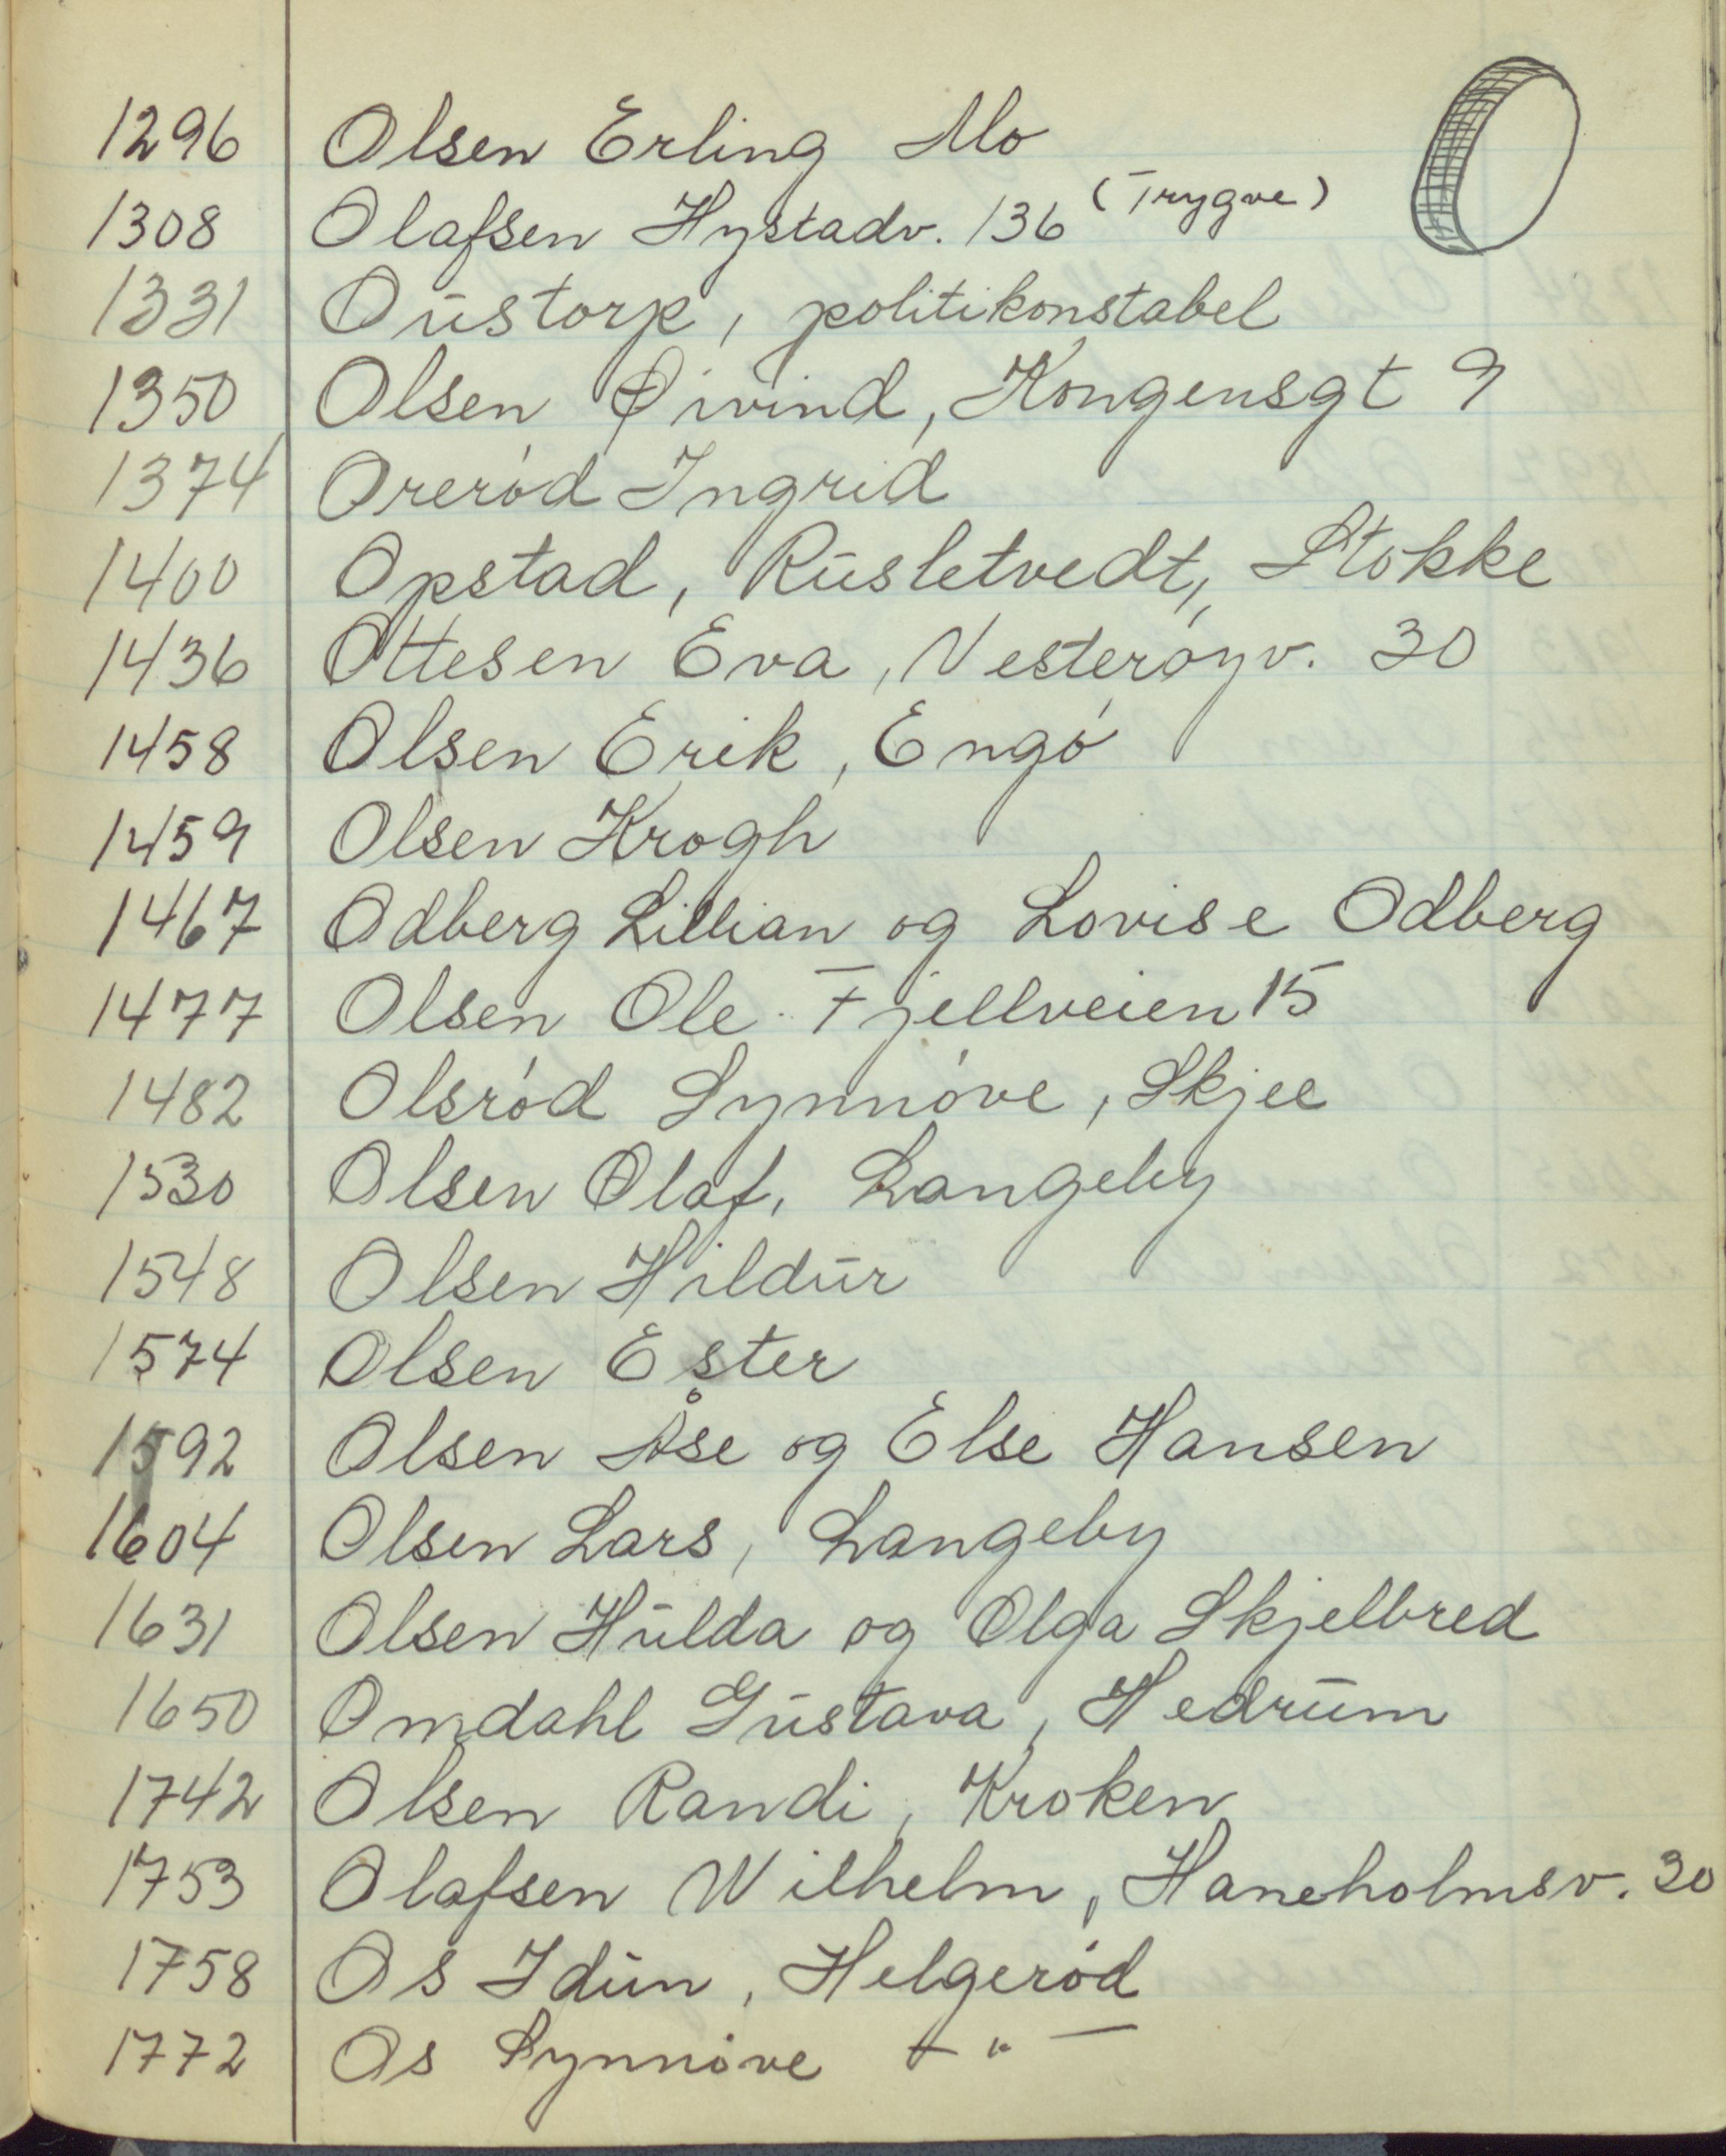 1296 Olsen Erling Mo
1308 Olafsen Hystadv. 136 (Trygve)
1331 Oustorp, politikonstabel
1350 Olsen Øivind, Kongensgt 9
1374 Orerød Ingrid
1400 Opstad, Rusletvedt, Stokke
1436 Ottesen Eva, Vesterøyv. 30
1458 Olsen Erik, Engø
1459 Olsen Krogh
1467 Odberg Lillian og Lovise Odberg
1477 Olsen Ole. Fjellveien 15
1482 Olsrød Synnøve, Skjee
1530 Olsen Olaf, Langeby
1548 Olsen Hildur
1574 Olsen Ester
1592 Olsen Åse og Else Hansen
1604 Olsen Lars, Langeby
1631 Olsen Hulda og Olga Skjelbred
1650 Omdahl Gustava, Hedrum
1742 Olsen Randi, Kroken
1753 Olafsen Wilhelm, Haneholmsv. 30
1758 Os Idun, Helgerød
1772 Os Synnøve — " —